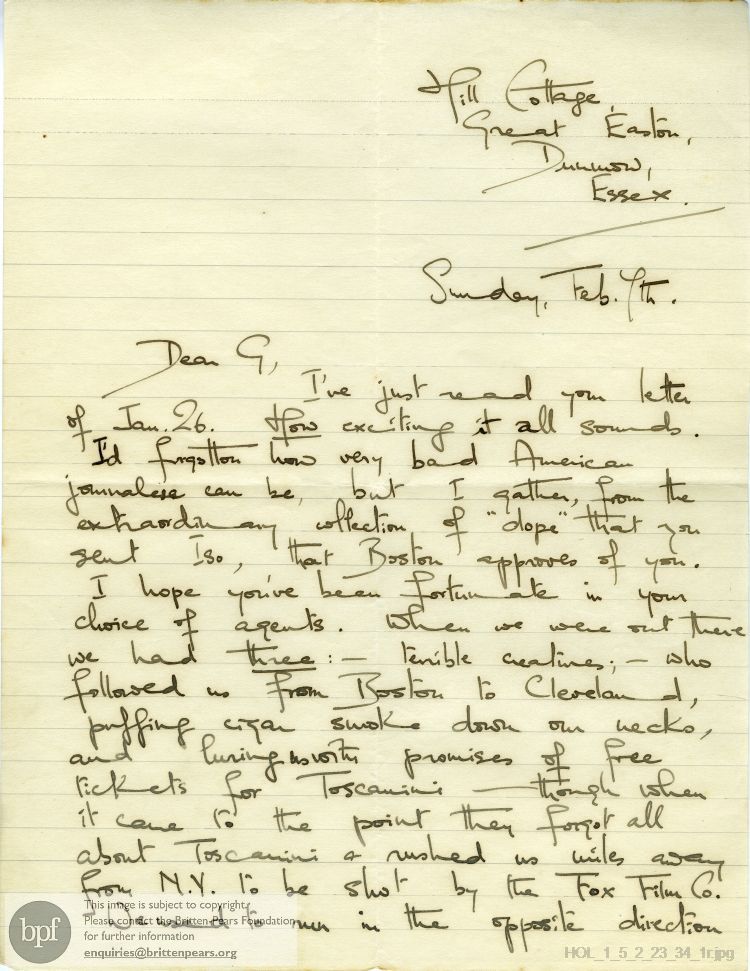 Hill Cottage,
Great Easton,
Dunmow,
Essex.
Sunday, Feb. 7th.
Dear G,
I've just read your letter
of Jan. 26. How exciting it all sounds.
I'd forgotton how very band American
journalese can be, but I gather, from the
extraordinary collection of "dope" that you
sent Iso, that Boston approves of you.
I hope you've been fortunate in your
choice of agents. When we were out there
we had three: – terrible creatures; – who
followed us from Boston to Cleveland,
puffing cigar smoke down our necks,
and luring us with promises of free
tickets for Toscanini — though when
it came to the point they forgot all
about Toscanini & rushed us miles away
from N.Y. to be shot by the Fox Film Co.
We used to run in the opposite direction
bpf
This image is subject to copyright
Please contact the Britten-Pears Foundation
for further information
enquiries@brittenpears.org
HOL_1_5_2_23_34_1r.jpg